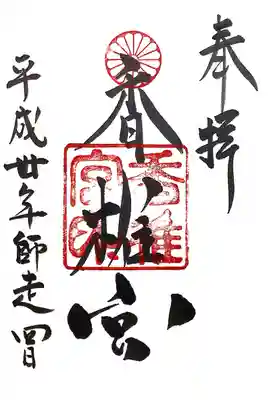 奉拝
香椎宮
香椎宮印
平成廿年師走四日